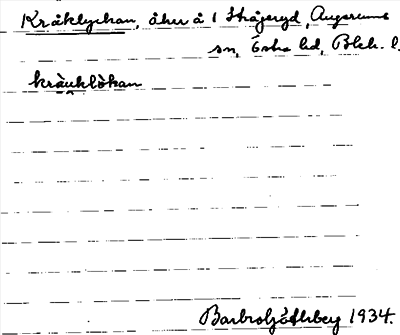 Kråklyckan, åker å 1 Stråjeryd, Augerums
sn, Östra hd, Blek. l.
kràuklökan
Barbro Söderberg 1934.